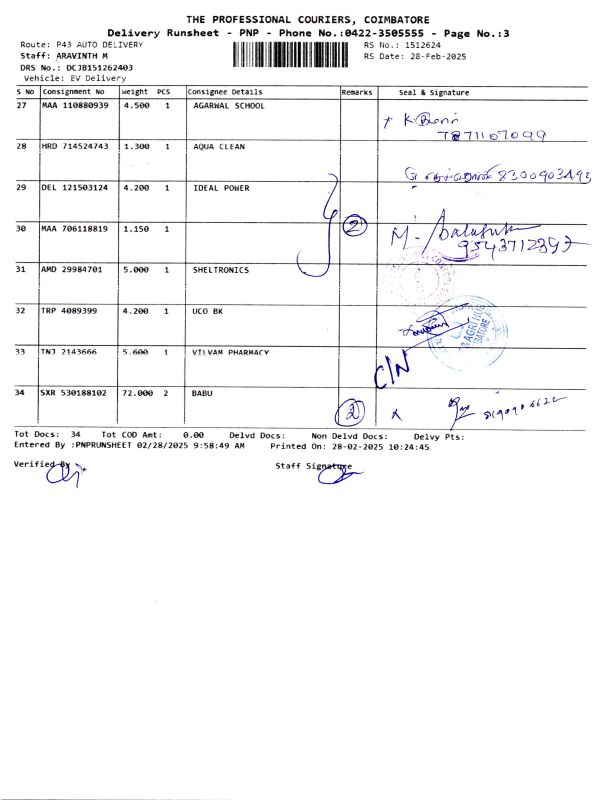 THE PROFESSIONAL COURIERS, COIMBATORE
Delivery Runsheet - PNP - Phone No.:0422-3505555 - Page No.:3
Route: P43 AUTO DELIVERY RS No.: 1512624
Staff: ARAVINTH M RS Date: 28-Feb-2025
DRS No.: DCJB151262403
Vehicle: EV Delivery
S No Consignment No Weight PCS Consignee Details Remarks Seal & Signature
27 MAA 110880939 4.500 1 AGARWAL SCHOOL
7871107099
28 HRD 714524743 1.300 1 AQUA CLEAN 8300903493
29 DEL 121503124 4.200 1 IDEAL POWER
30 MAA 706118819 1.150 1 2 M.
9543712397
31 AMD 29984701 5.000 1 SHELTRONICS
32 TRP 4089399 4.200 1 UCO BK
33 TNJ 2143666 5.600 1 VILVAM PHARMACY C/N
34 SXR 530188102 72.000 2 BABU 2 x
Tot Docs: 34 Tot COD Amt: 0.00 Delvd Docs: Non Delvd Docs: Delvy Pts:
Entered By :PNPRUNSHEET 02/28/2025 9:58:49 AM Printed On: 28-02-2025 10:24:45
Verified By Staff Signature